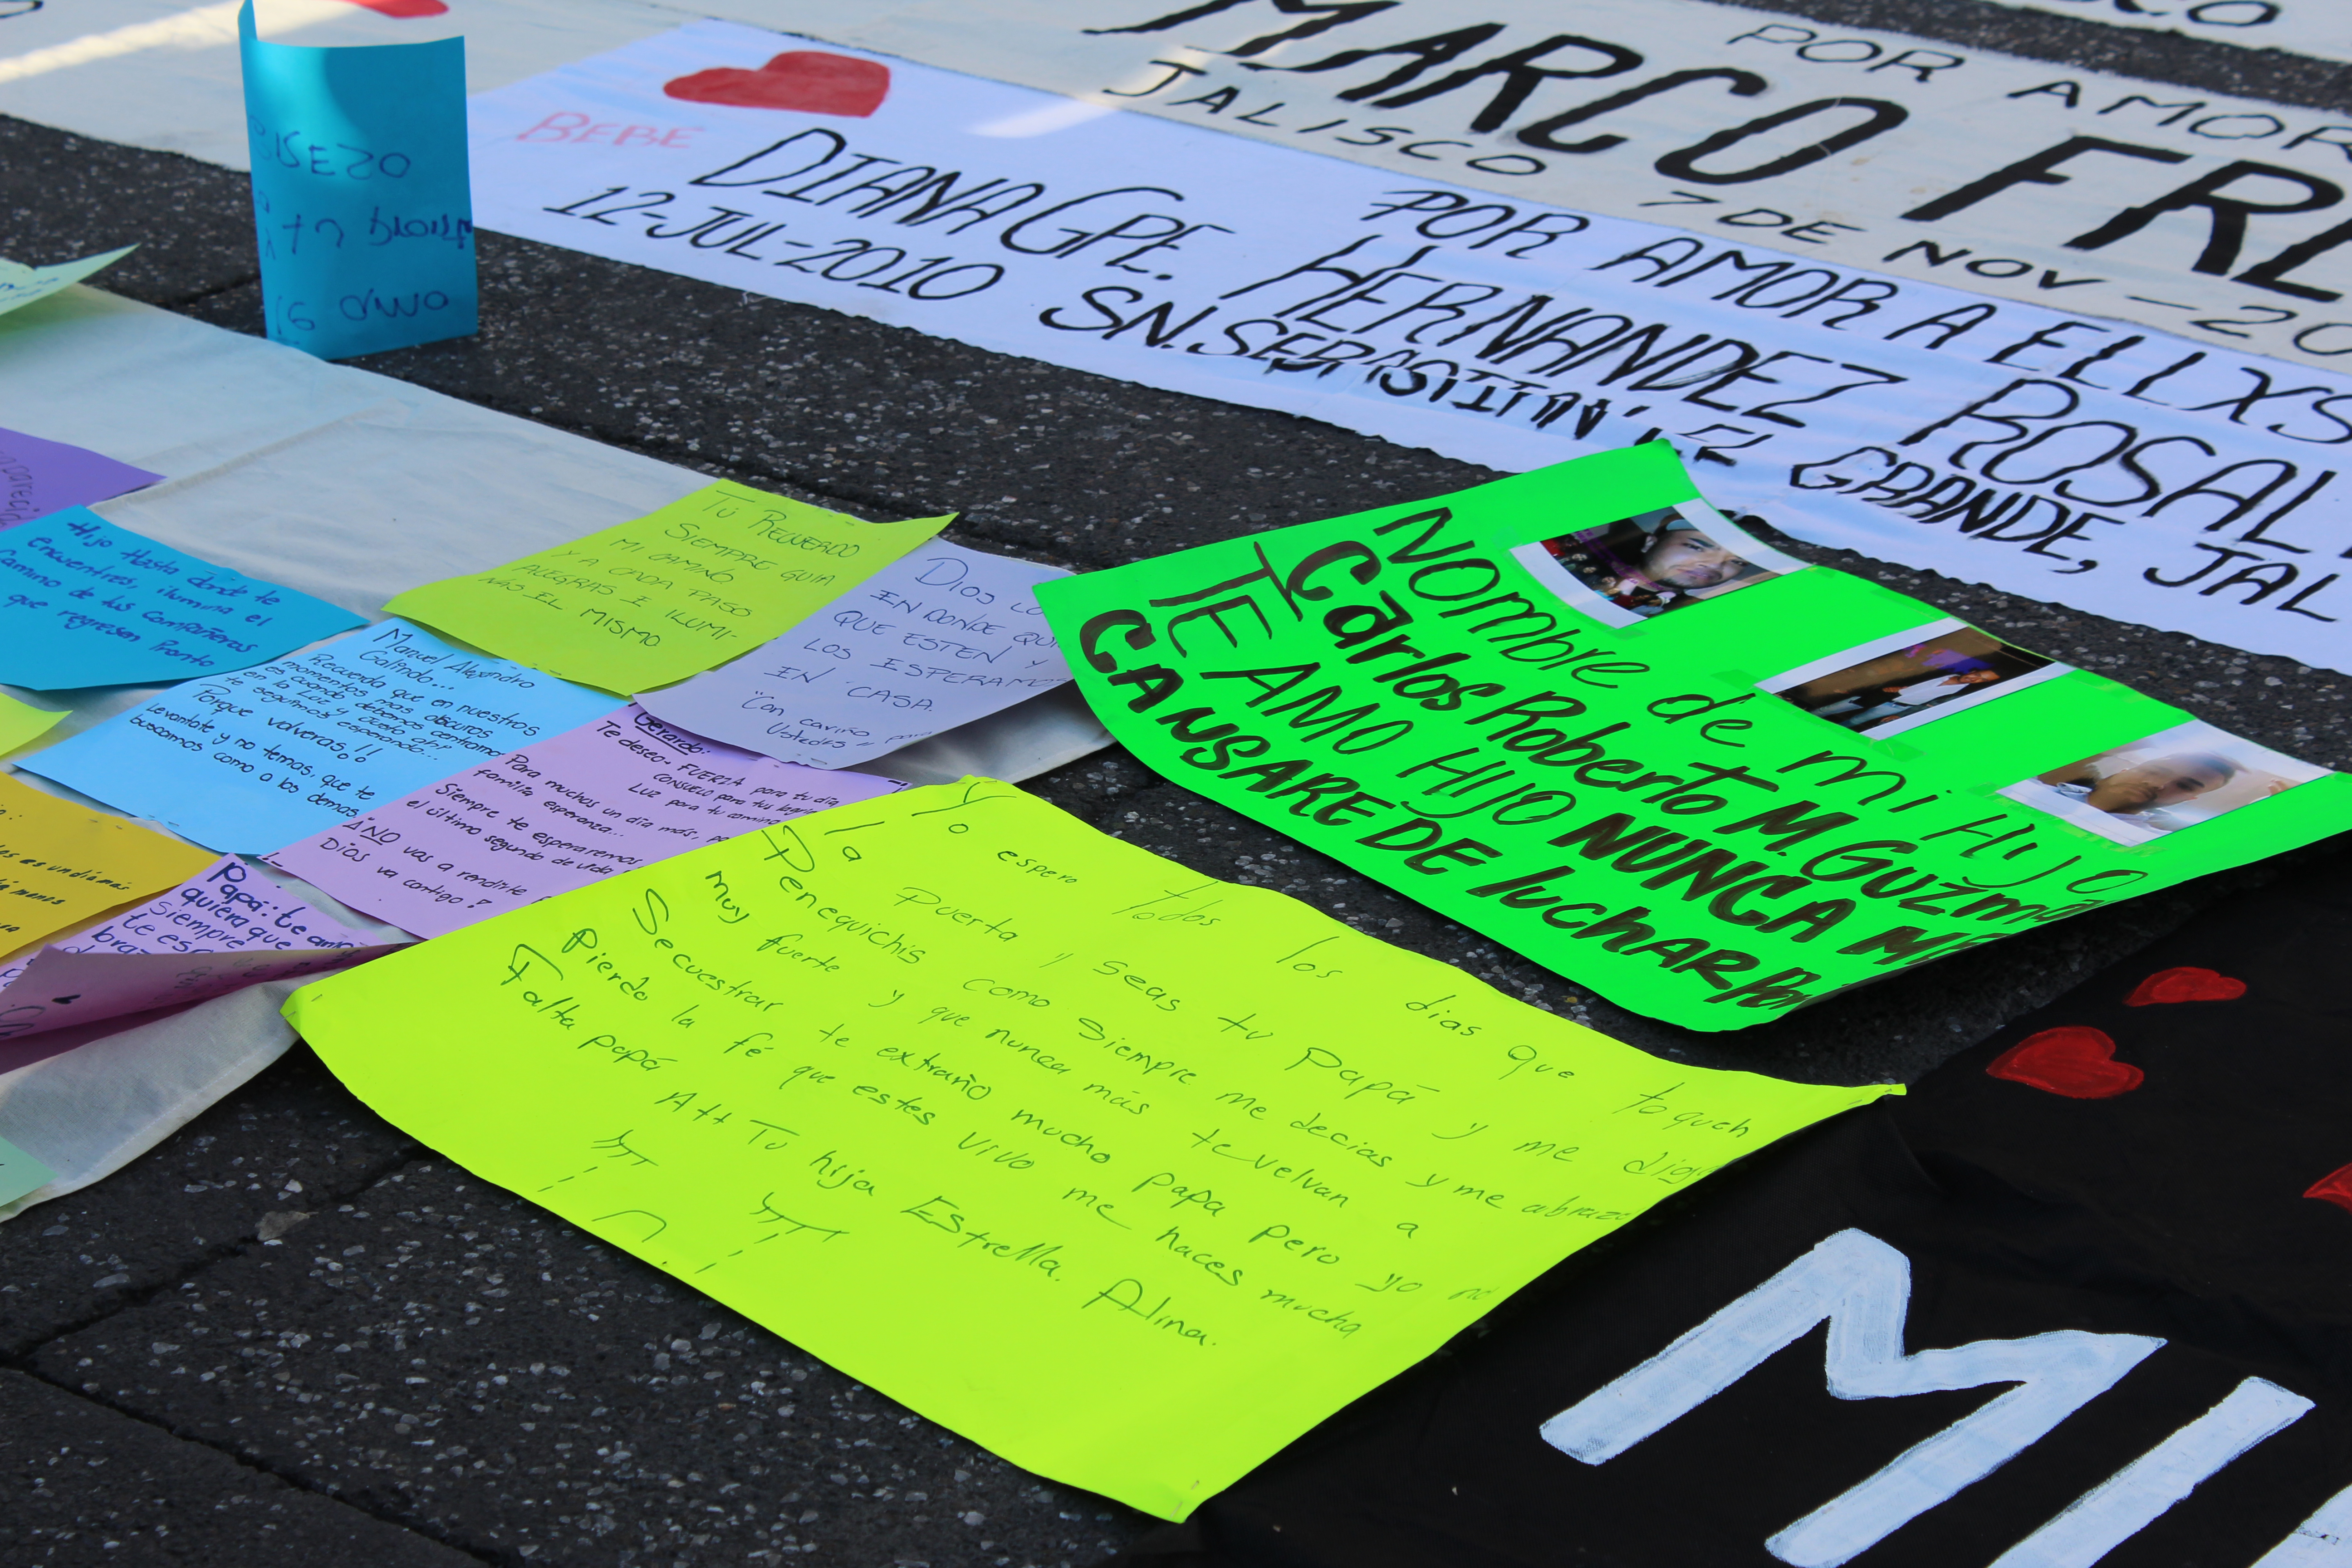 MARCO
POR AMOR
JALISCO 7 DE NOV-20
BEBE
POR AMOR A ELLXS
DIANA GPE. HERNANDEZ ROSAL
12-JUL-2010 SN. SEBASTIAN EL GRANDE, JAL
16
Hijo Hasta donde te
encuentres, ilumina el
camino de tus compañeros
que regresen Pronto
TÚ RECUERDO
SIEMPRE GUIA
MI CAMINO
Y A CADA PASO
ALEGRAS E ILUMI-
NAS EL MISMO
DIOS
EN DONDE
QUE ESTEN Y
LOS ESPERAMOS
EN CASA.
"Con cariño para
Ustedes"
Manuel Alejandro
Galindo...
Recuerda que en nuestros
momentos mas obscuros
es cuando debemos centrarnos
en la Luz y
te seguimos esperando...
Porque volveras!!
Levantate y no temas, que te
buscamos como a los demas.
Gerardo:
Te deseo: FUERZA para tu día
CONSUELO para tus
LUZ para tu camino
Para muchos un día más, pa
familia esperanza...
Siempre te esperaremos
el último segundo de vida
¡NO vas a rendirte
Dios va contigo!
es un día más
menos
Papá: te amo
quiera que
siempre
te es
braz
Nombre de mi Hijo
Carlos Roberto M. Guzm
TE AMO HIJO NUNCA ME
CANSARE DE luchar Por
Yo espero todos los dias que toquen
la Puerta y seas tu Papá y me digas
Penequichis como siempre me decias y me abraz
muy fuerte y que nunca más te velvan a
Secuestrar te extraño mucho papa pero yo no
pierdo la fé que estes vivo me haces mucha
Falta papá Att Tu hija Estrella. Alina.
MI